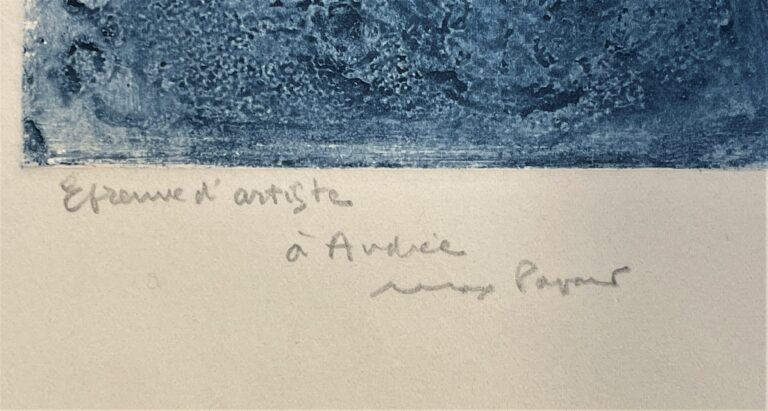 Epreuve d'artiste
à Andrée
Max Papart